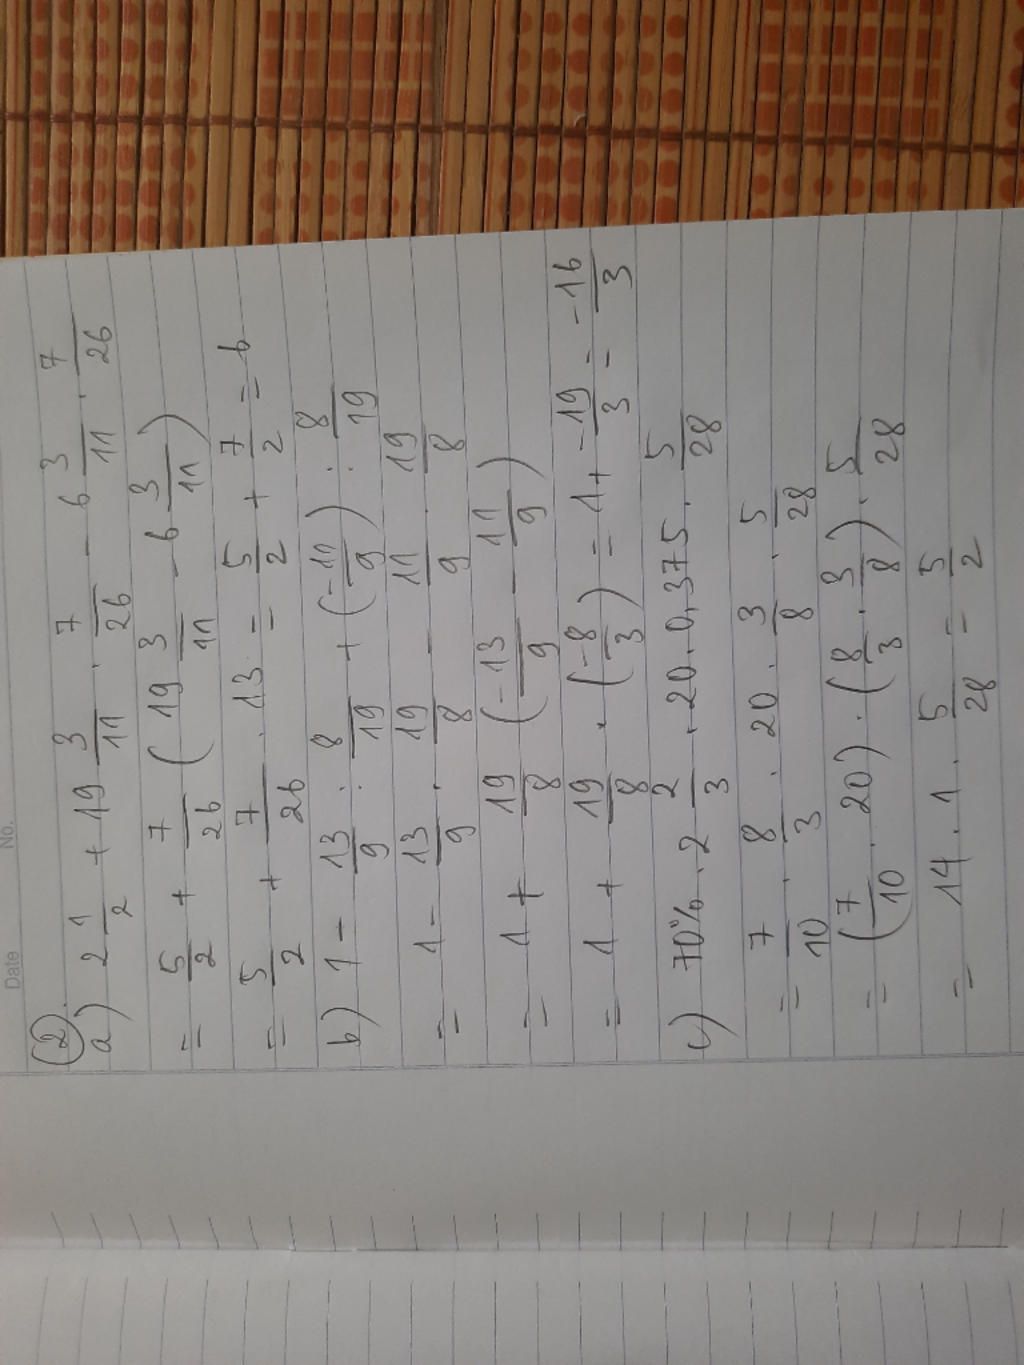 Date No.
(2).
a) 2 1/2 + 19 3/11 . 7/26 - 6 3/11 . 7/26
= 5/2 + 7/26 (19 3/11 - 6 3/11)
= 5/2 + 7/26 . 13 = 5/2 + 7/2 = 6
b) 1 - 13/9 : 8/19 + (-11/9) : 8/19
= 1 - 13/9 . 19/8 - 11/9 . 19/8
= 1 + 19/8 (-13/9 - 11/9)
= 1 + 19/8 . (-8/3) = 1 + -19/3 = -16/3
c) 70% . 2 2/3 . 20 . 0,375 . 5/28
= 7/10 . 8/3 . 20 . 3/8 . 5/28
= (7/10 . 20) . (8/3 . 3/8) . 5/28
= 14 . 1 . 5/28 = 5/2